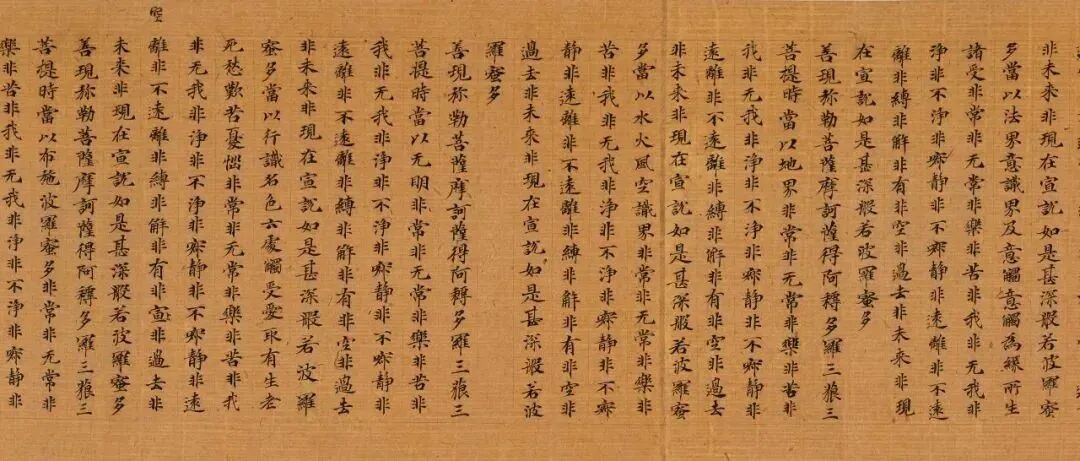 非未来非現在宣說如是甚深般若波羅蜜
多當以法界意識界及意觸意觸為緣所生
諸受非常非无常非樂非苦非我非无我非
淨非不淨非寂静非不寂静非遠離非不遠
離非縛非解非有非空非過去非未来非現
在宣說如是甚深般若波羅蜜多
善現弥勒菩薩摩訶薩得阿耨多羅三藐三
菩提時當以地界非常非无常非樂非苦非
我非无我非淨非不淨非寂静非不寂静非
遠離非不遠離非縛非解非有非空非過去
非未来非現在宣說如是甚深般若波羅蜜
多當以水火風空識界非常非无常非樂非
苦非我非无我非淨非不淨非寂静非不寂
静非遠離非不遠離非縛非解非有非空非
過去非未来非現在宣說如是甚深般若波
羅蜜多
善現弥勒菩薩摩訶薩得阿耨多羅三藐三
菩提時當以无明非常非无常非樂非苦非
我非无我非淨非不淨非寂静非不寂静非
遠離非不遠離非縛非解非有非空非過去
非未来非現在宣說如是甚深般若波羅
蜜多當以行識名色六處觸受愛取有生老
死愁歎苦憂惱非常非无常非樂非苦非我
非无我非淨非不淨非寂静非不寂静非遠
空
離非不遠離非縛非解非有非空非過去非
未来非現在宣說如是甚深般若波羅蜜多
善現弥勒菩薩摩訶薩得阿耨多羅三藐三
菩提時當以布施波羅蜜多非常非无常非
樂非苦非我非无我非淨非不淨非寂静非